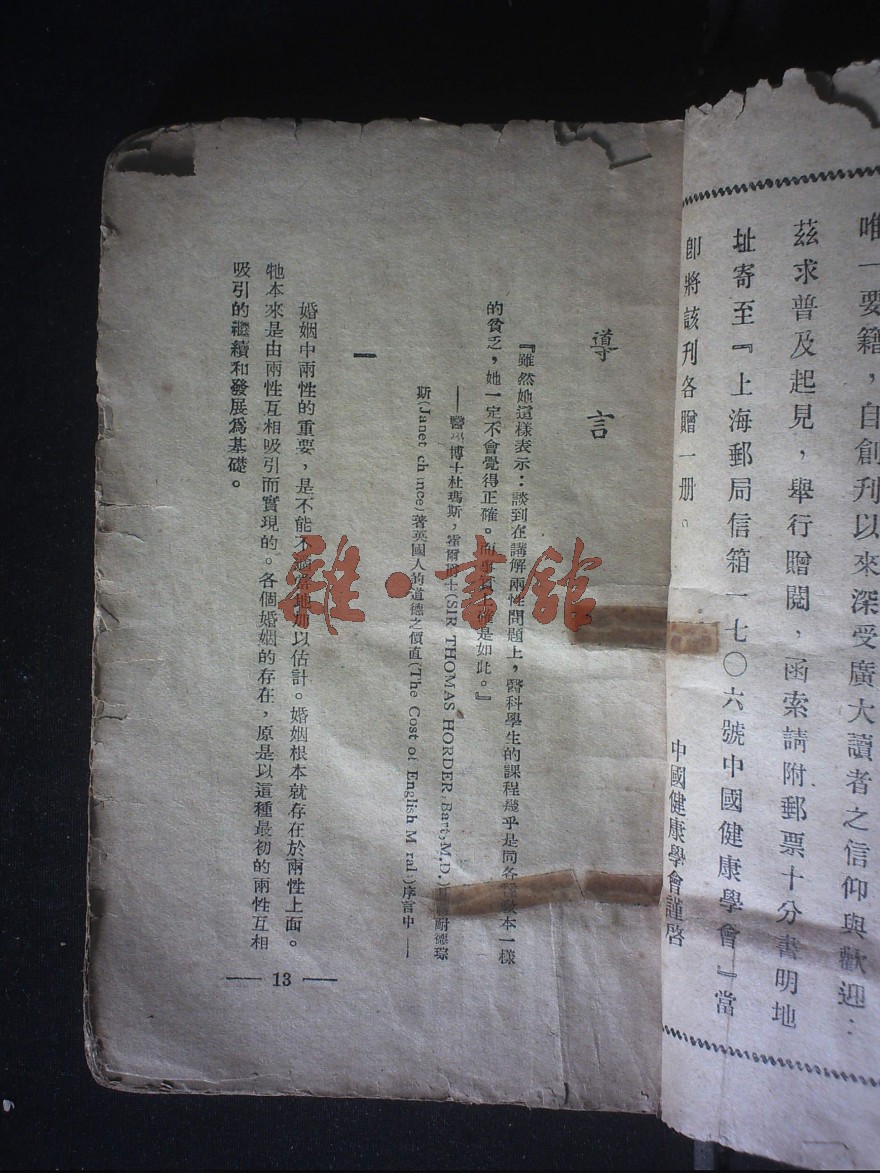 唯一要籍，自創刊以來深受廣大讀者之信仰與歡迎：
茲求普及起見，舉行贈閱，函索請附郵票十分書明地
址寄至『上海郵局信箱一七〇六號中國健康學會』當
卽將該刊各贈一册。
中國健康學會謹啓
導言
『雖然她這樣表示：談到在講解兩性問題上，醫科學生的課程幾乎是同各 本一樣
的貧乏，她一定不會覺得正確。而 是如此。』
——醫 博士杜瑪斯，霍爾 士(SIR THOMAS HORDER, Bart, M,D.) 耐德琮
斯(Janet ch nce)著英國人的道德之價直(The Cost of English M ral:)序言中——
一
婚姻中兩性的重要，是不能不 地加以估計。婚姻根本就存在於兩性上面。
牠本來是由兩性互相吸引而實現的。各個婚姻的存在，原是以這種最初的兩性互相
吸引的繼續和發展爲基礎。
— 13 —
雜·書館